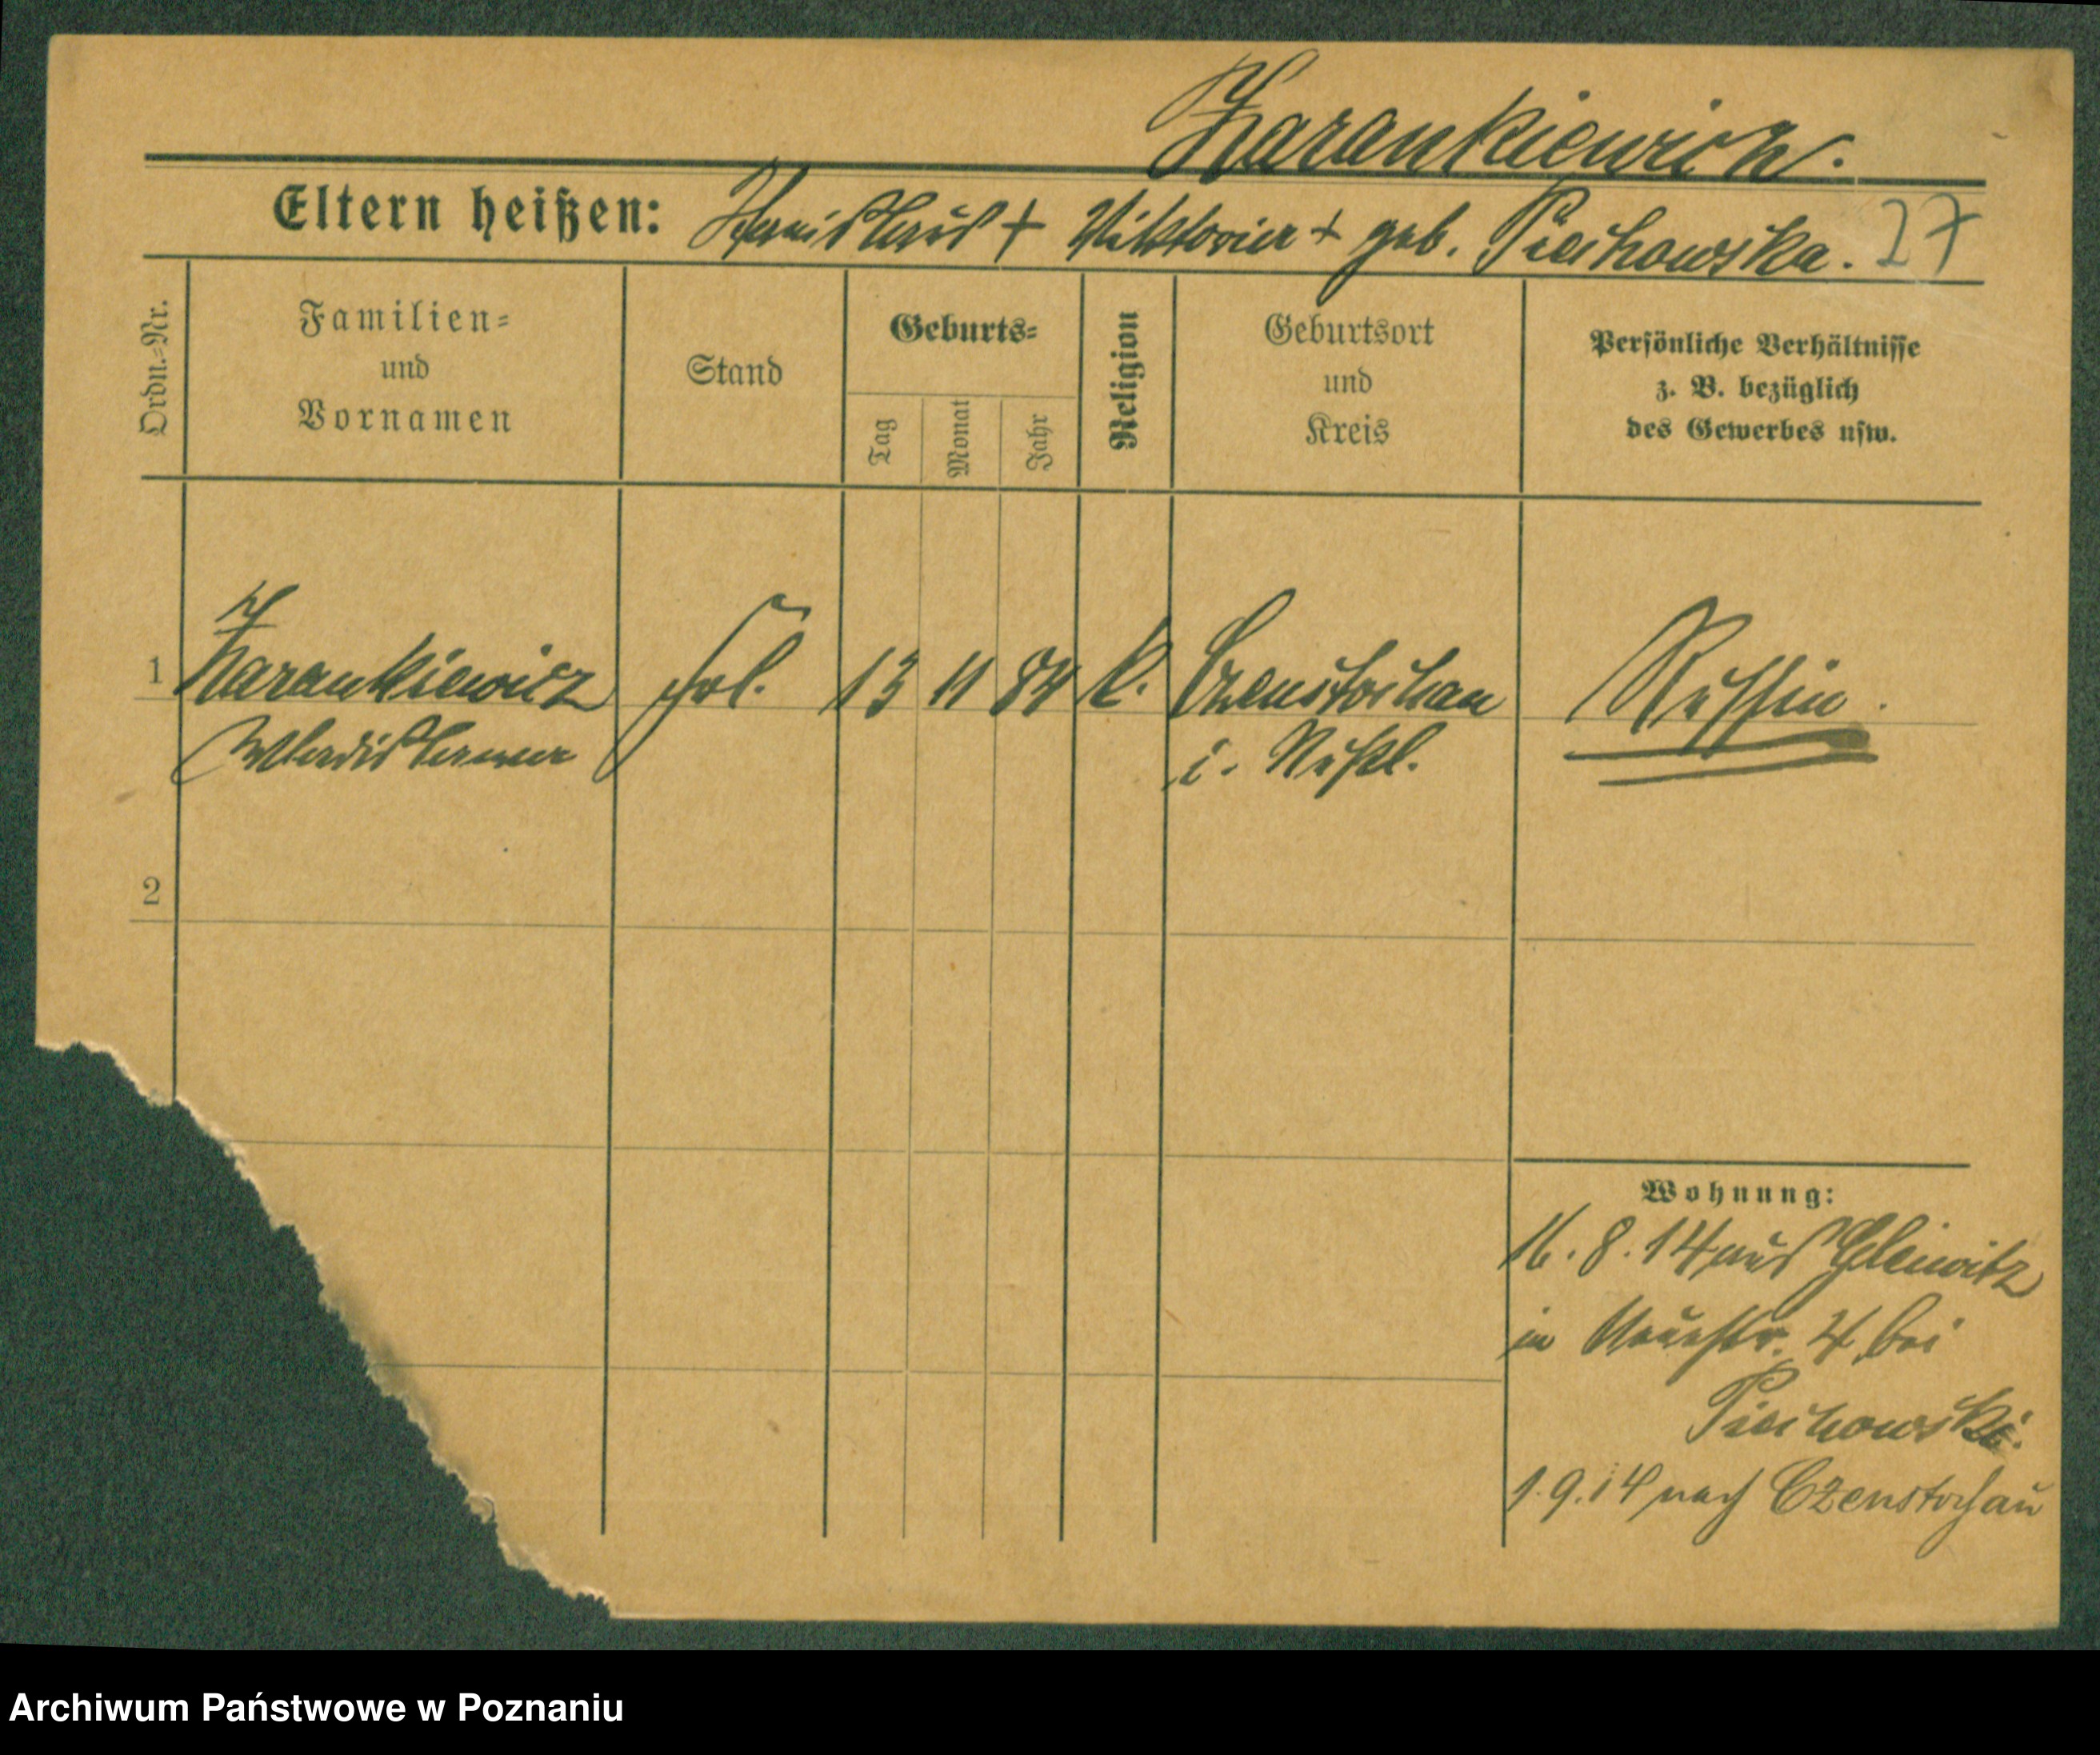 Zarankiewicz.
Eltern heißen: Stanislaus + Viktoria + geb. Piechowska. 27
Ordn.=Nr.
Familien=
und
Vornamen
Stand
Geburts=
Tag
Monat
Jahr
Religion
Geburtsort
und
Kreis
Persönliche Verhältnisse
z. B. bezüglich
des Gewerbes usw.
1 Zarankiewicz frl. 13 11 84 k. Czenstochau Russin.
Wladislawa i. Rußl.
2
Wohnung:
16. 8. 14 aus Gleiwitz
in Neuestr. 4 bei
Piechowski.
1.9.14 nach Czenstochau
Archiwum Państwowe w Poznaniu